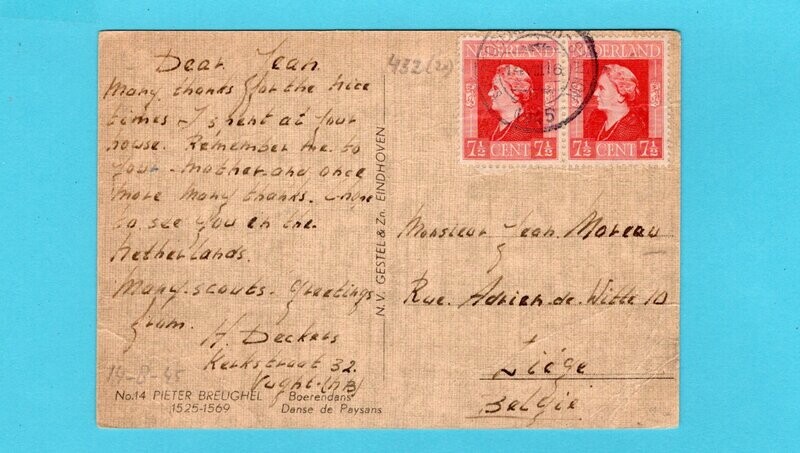 Dear Jean
Many thanks for the nice
times I spent at your
house. Remember me to
your mother and once
more many thanks. Hope
to see you in the
Netherlands.
Many scouts. greetings
from.
H. Deckers
Kerkstraat 32.
Vught (NB)
14-8-45
No.14 PIETER BREUGHEL
1525-1569
Boerendans
Danse de Paysans
N.V. GESTEL & Zn. EINDHOVEN
432(2)
NEDERLAND
7½ CENT 7½
NEDERLAND
7½ CENT 7½
Monsieur Jean Moreau
Rue. Adrien de Witte 10
Liége
België